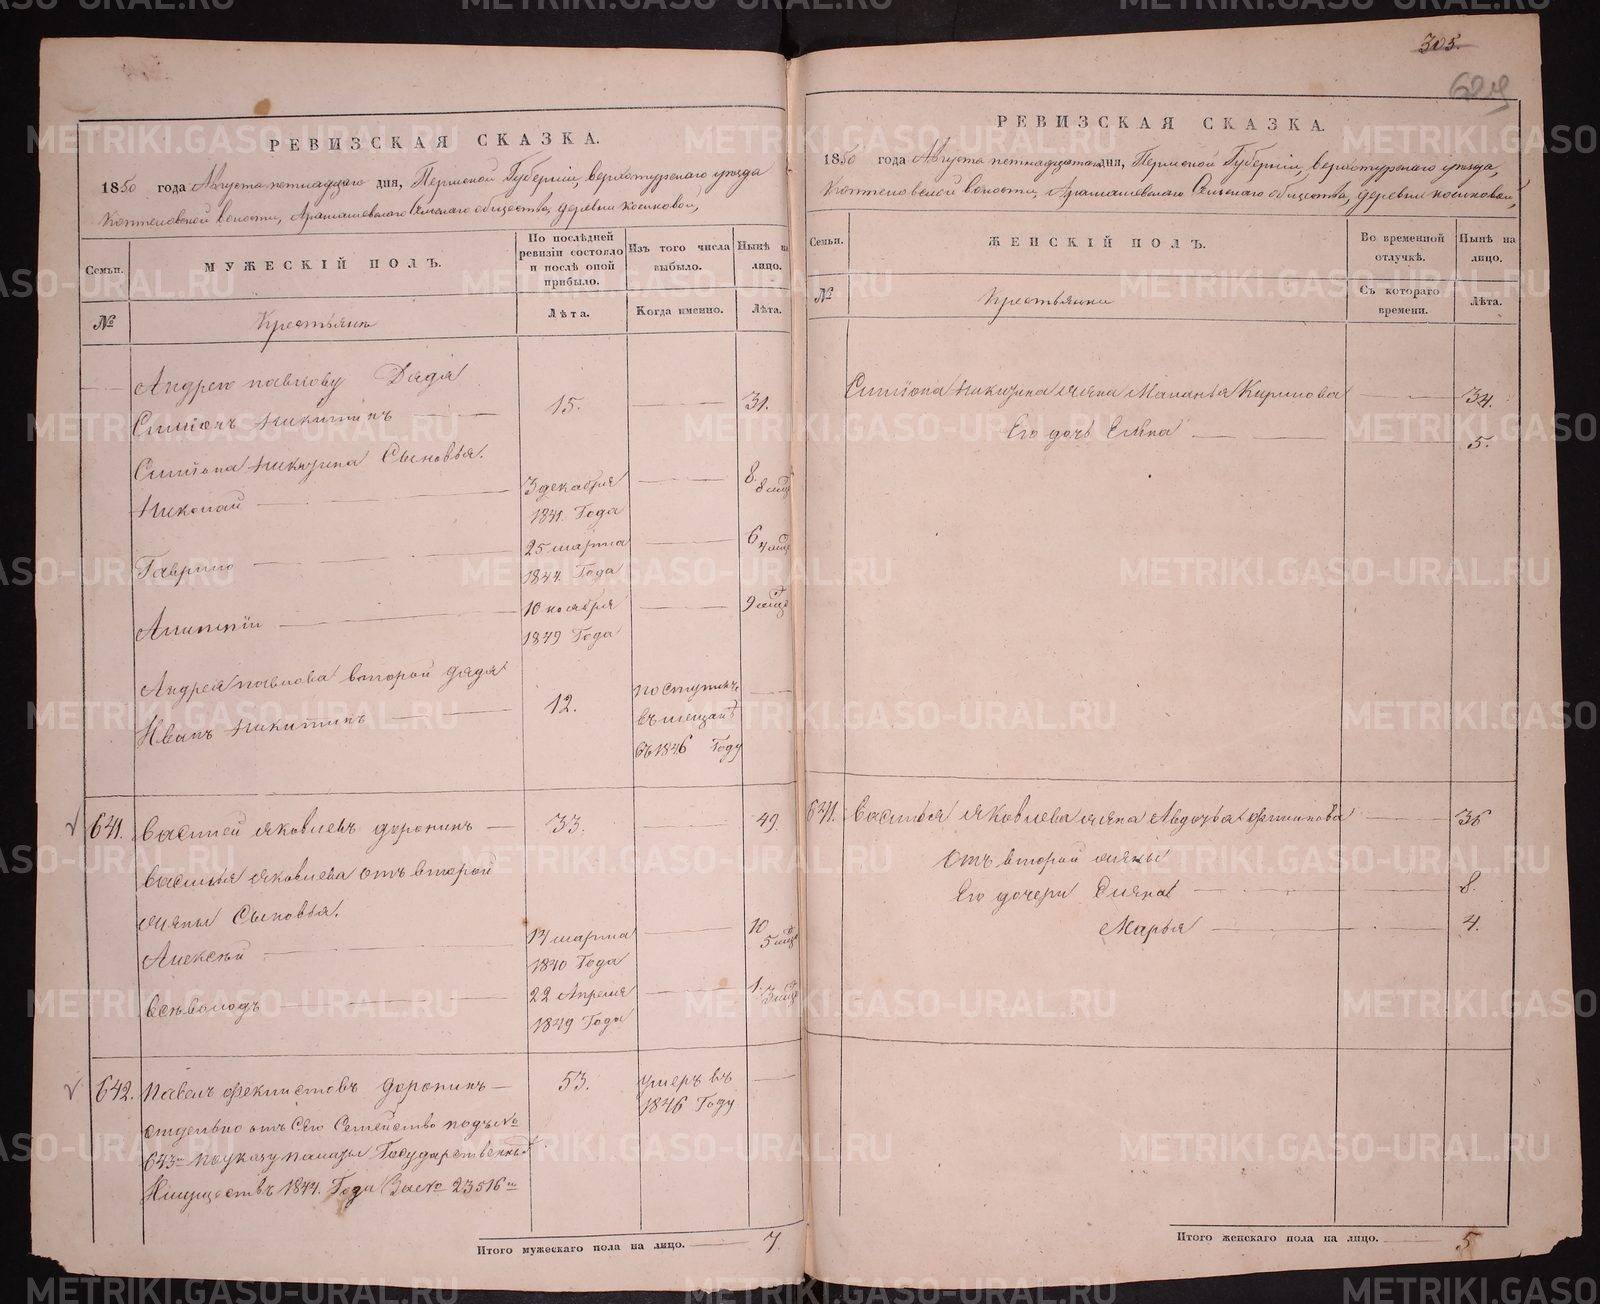 305.
629
РЕВИЗСКАЯ СКАЗКА.
1850 года Августа петнадцатаго дня, Пермской Губернiи, верхотурскаго уѣзда
Коптеловской волости, Арамашевскаго Сельскаго общества, деревни косиковой,
Семьи.
МУЖЕСКIЙ ПОЛЪ.
По послѣдней ревизiи состояло и послѣ оной прибыло.
Изъ того числа выбыло.
Нынѣ на лицо.
№
Крестьянъ
Лѣта.
Когда именно.
Лѣта.
Андрею павлову Дядя
Симiонъ никитинъ 15. 31.
Симiона никитина Сыновья.
Николай 3 декабря 1841. Года 8. 8 мцъ
Гаврило 25 марта 1844. Года 6 4 мцъ
10 ноября 1849 Года 9 мцъ
Андрея павлова второй дядя
Иванъ никитинъ 12. поступилъ въ мещанъ въ 1846 Году
641. василей яковлевъ доронинъ 33. 49.
василья яковлева отъ второй
жены Сыновья.
Алексѣй 14 марта 1840 Года 10 5 мцъ
всѣволодъ 22 Апреля 1849 Года 1. 3 мцъ
642. павелъ феклистовъ доронинъ 53. умеръ въ 1846 Году
отдельно отъ Сего Семейство подъ №
643 м по указу палаты Государственныхъ
Имуществъ 1844. Года За № 23516 м
Итого мужескаго пола на лицо. 7
РЕВИЗСКАЯ СКАЗКА.
1850 года Августа петнадцатаго дня, Пермской Губернiи, верхотурскаго уѣзда,
Коптеловской волости, Арамашевскаго Сельскаго общества, деревни косиковой,
Семьи.
ЖЕНСКIЙ ПОЛЪ.
Во временной отлучкѣ.
Нынѣ на лицо.
№
Крестьянки
Съ котораго времени.
Лѣта.
Симiона никитина жена Маланья Кирилова 34.
Его дочь Елена 5.
641. василья яковлева жена Авдотья филипова 36
отъ второй жены
Его дочери 8.
Марья 4.
Итого женскаго пола на лицо. 5
METRIKI.GASO-URAL.RU